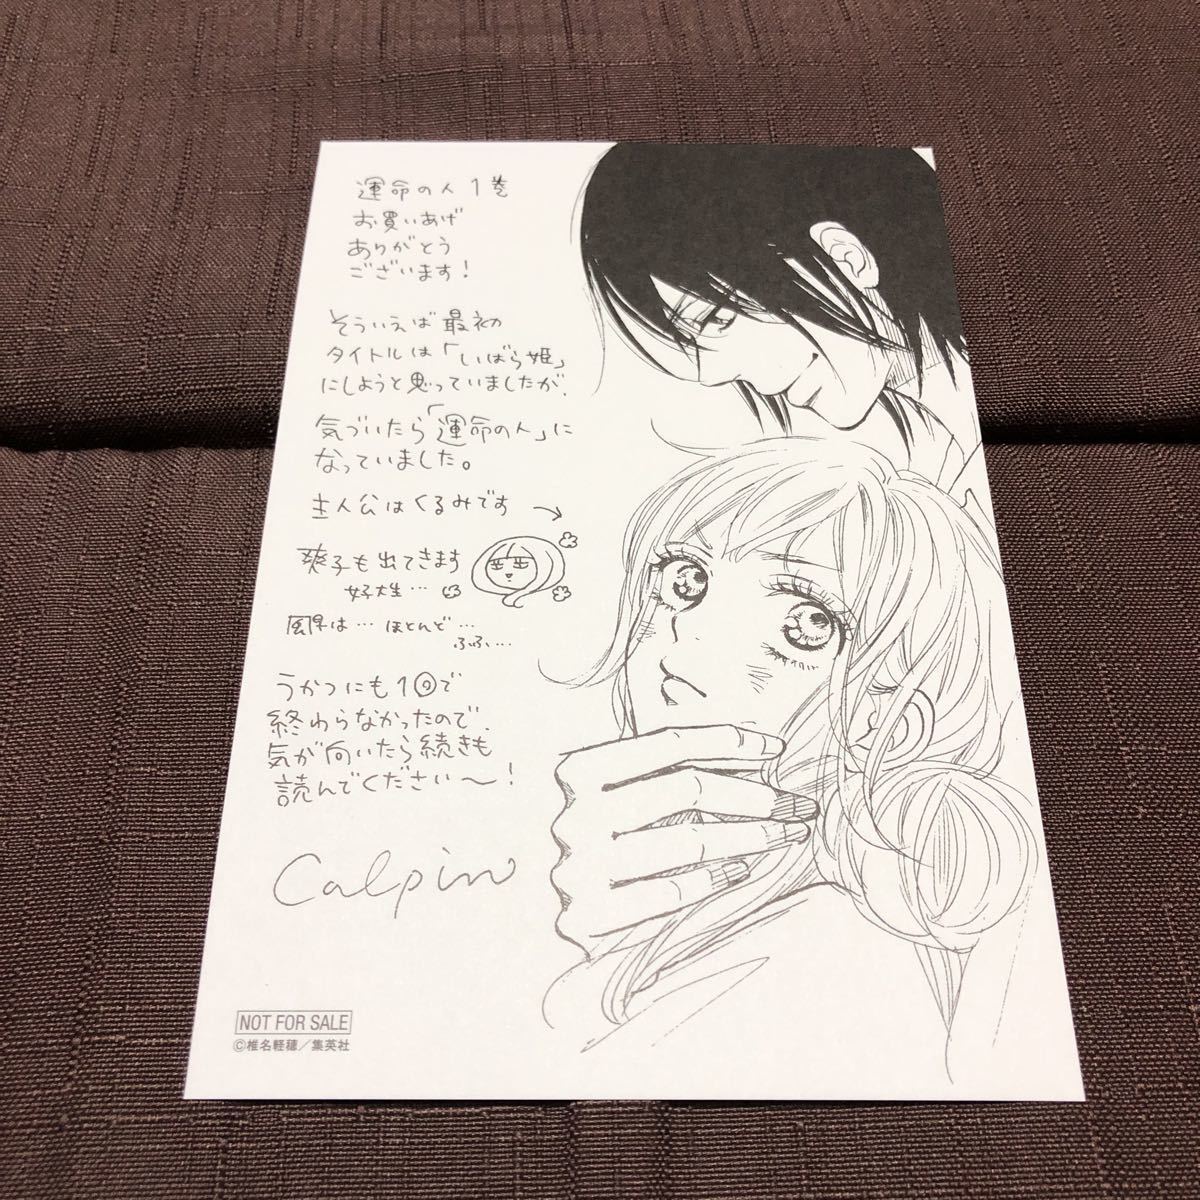 運命の人 1巻
お買いあげ
ありがとう
ございます!
そういえば最初
タイトルは「いばら姫」
にしようと思っていましたが、
気づいたら「運命の人」に
なっていました。
主人公はくるみです →
爽子も出てきます
女子大生…
風早は… ほとんど…
ふふ…
うかつにも1回で
終わらなかったので、
気が向いたら続きも
読んでください〜!
Calpin
NOT FOR SALE
©椎名軽穂/集英社